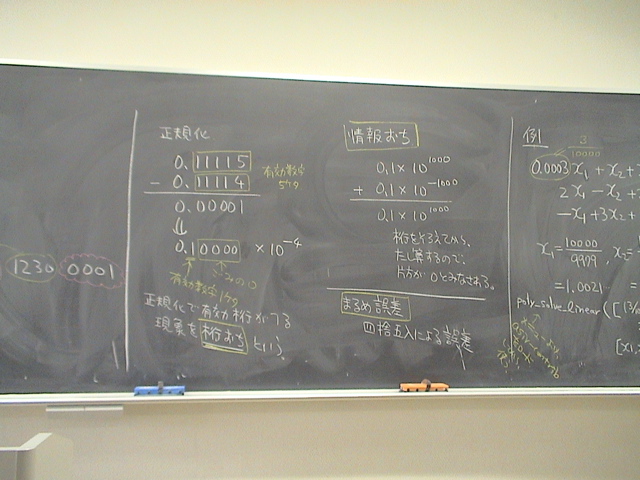 1230 0001
正規化
0.11115
有効数字
5ケタ
- 0.11114
0.00001
0.10000 × 10⁻⁴
有効数字1ケタ
正規化で有効桁が下る
現象を桁おちという。
情報おち
0.1 × 10¹⁰⁰⁰
+ 0.1 × 10⁻¹⁰⁰⁰
0.1 × 10¹⁰⁰⁰
桁をそろえてから、
たし算するので、
片方が0とみなされる。
まるめ誤差
四捨五入による誤差
例
3
10000
0.0003x₁ + x₂ +
2x₁ - x₂ +
-x₁ + 3x₂ +
x₁ = 10000/9909, x₂ =
= 1.0021
poly_solve_linear([
[x₁,